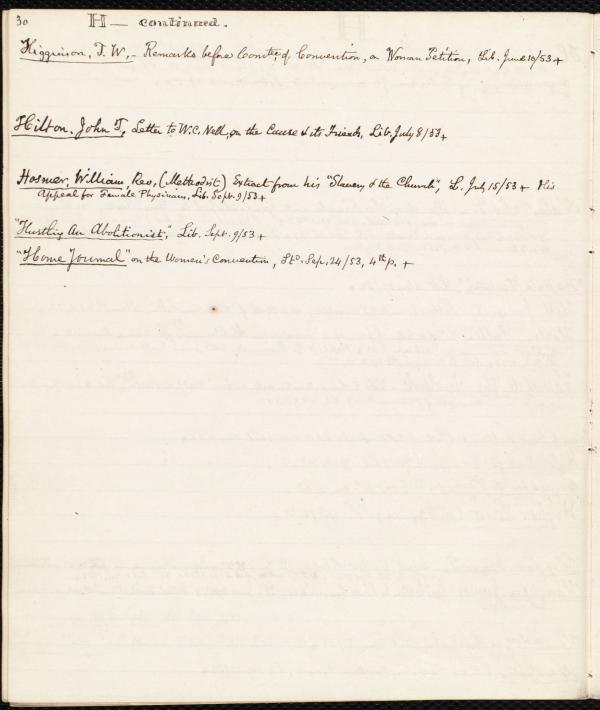 30 H — continued.
Higginson, T. W., - Remarks before Com.tee of Convention, on Woman Petition, Lib. June 10/53 +
Hilton, John T, Letter to W.C. Nell, on the Cause & its Friends, Lib. July 8/53 +
Hosmer, William, Rev, (Methodist) Extract from his "Slavery & the Church", L. July 15/53 + His
Appeal for Female Physicians, Lib. Sept. 9/53 +
"Hustling An Abolitionist," Lib. Sept. 9/53 +
"Home Journal" on the Women's Convention, St.d Sep. 24/53, 4th p. +